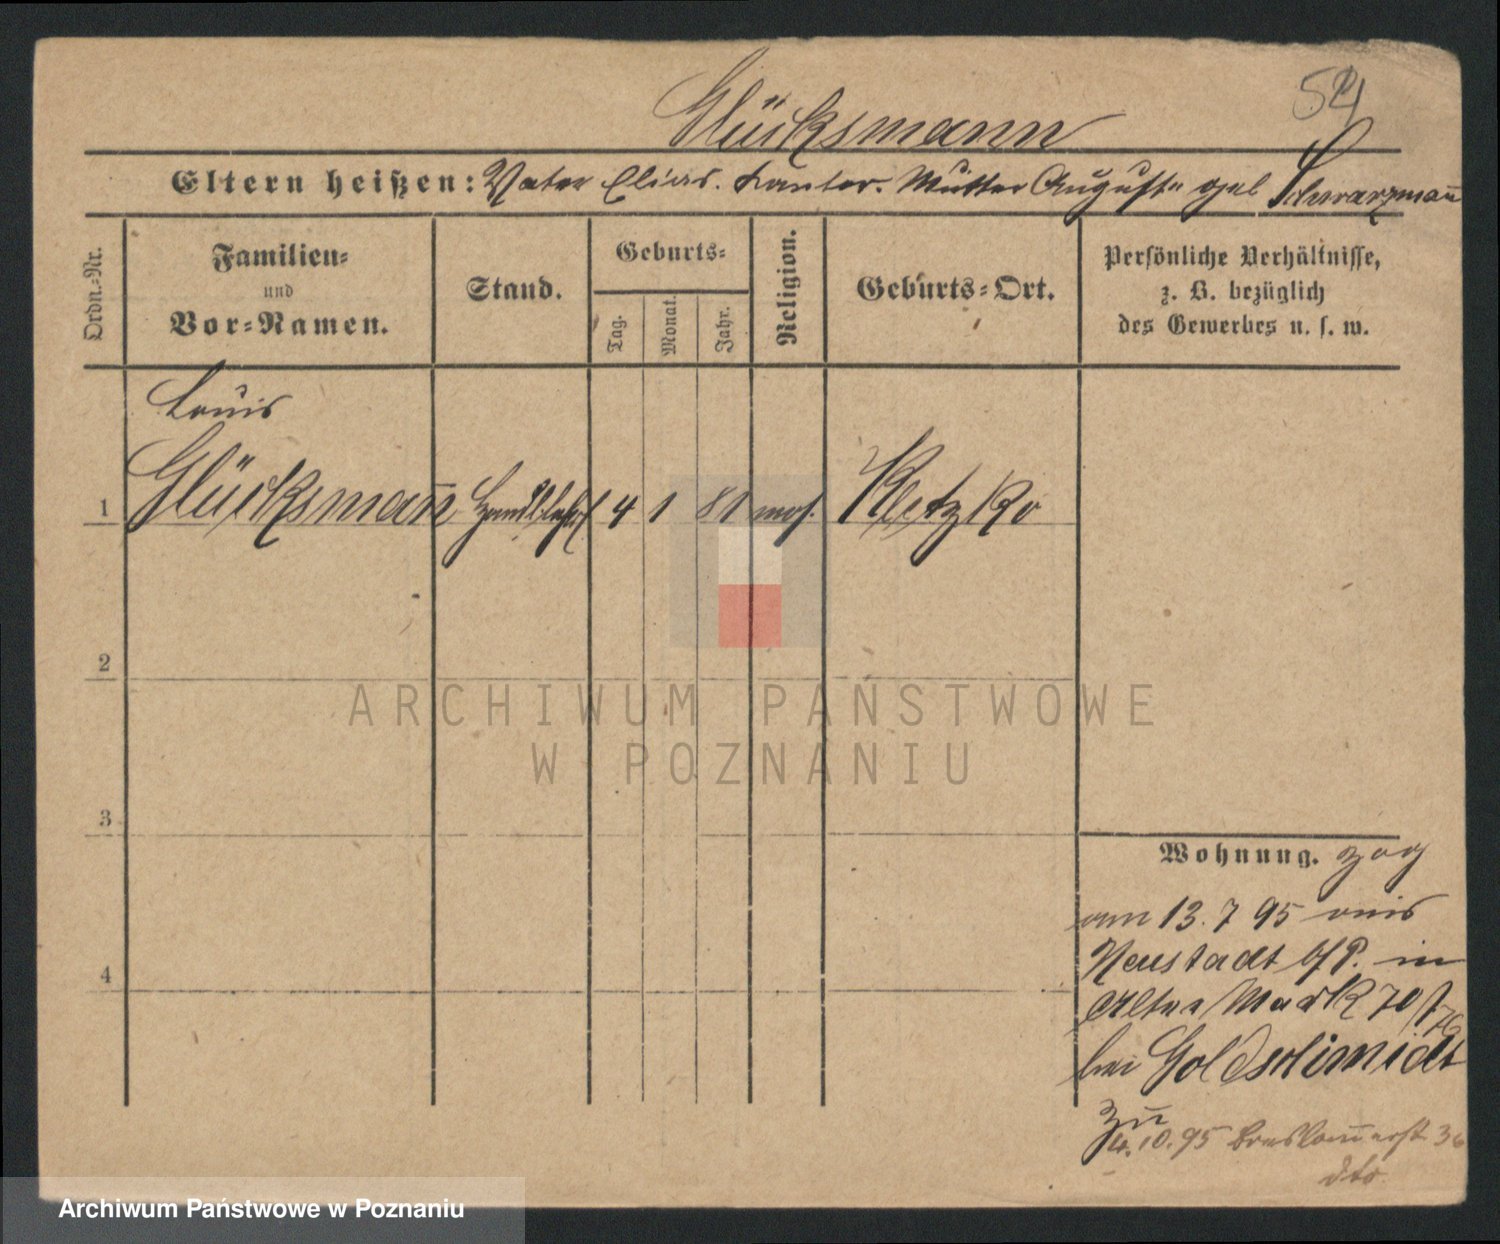 54
Glücksmann
Eltern heißen: Vater Elias. Kantor. Mutter Auguste geb Schwarzmann̄
Ordn.-Nr.
Familien-
und
Vor-Namen.
Stand.
Geburts-
Tag.
Monat.
Jahr.
Religion.
Geburts-Ort.
Persönliche Verhältnisse,
z. B. bezüglich
des Gewerbes u. s. w.
Louis
1 Glücksman̄ 4 1 81 mos. Kletzko
2
3
4
Wohnung. zog
am 13. 7 95 aus
Neustadt b/P. in
Alter Markt 70
bei Goldschmidt
zu
4. 10. 95 36
dto.
ARCHIWUM PAŃSTWOWE
W POZNANIU
Archiwum Państwowe w Poznaniu